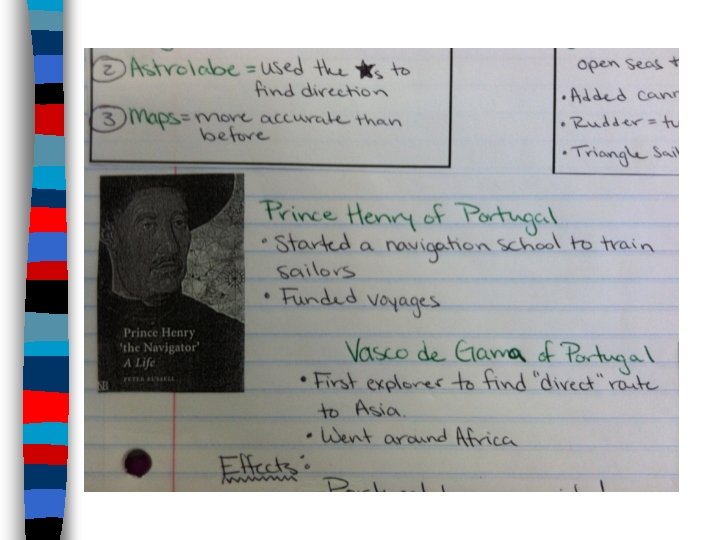 ② Astrolabe = used the ★s to
find direction
③ Maps = more accurate than
before
open seas
• Added
• Rudder =
• Triangle
Prince Henry of Portugal
• Started a navigation school to train
sailors
• Funded voyages
Prince Henry
'the Navigator'
A Life
PETER RUSSELL
Vasco de Gama of Portugal
• First explorer to find "direct" route
to Asia.
• Went around Africa
Effects: